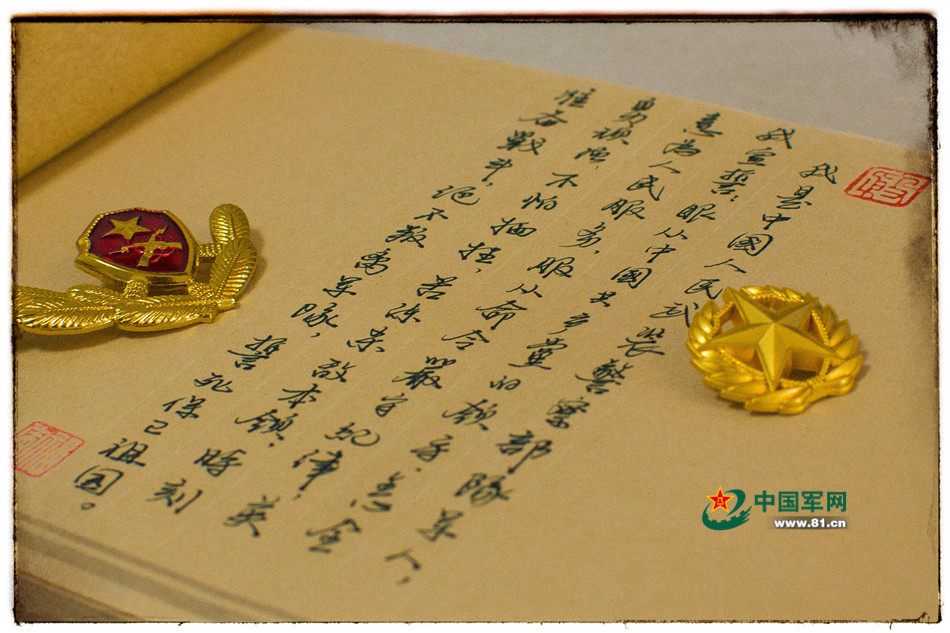 我是中國人民武装警察部隊军人，
我宣誓：服从中國共产党的领导，全心全
意为人民服务，服从命令，嚴守纪律，英
勇顽强，不怕牺牲，苦练杀敌本领，時刻
准备戰斗，绝不叛离军隊，誓死保卫祖国。
中国军网
www.81.cn